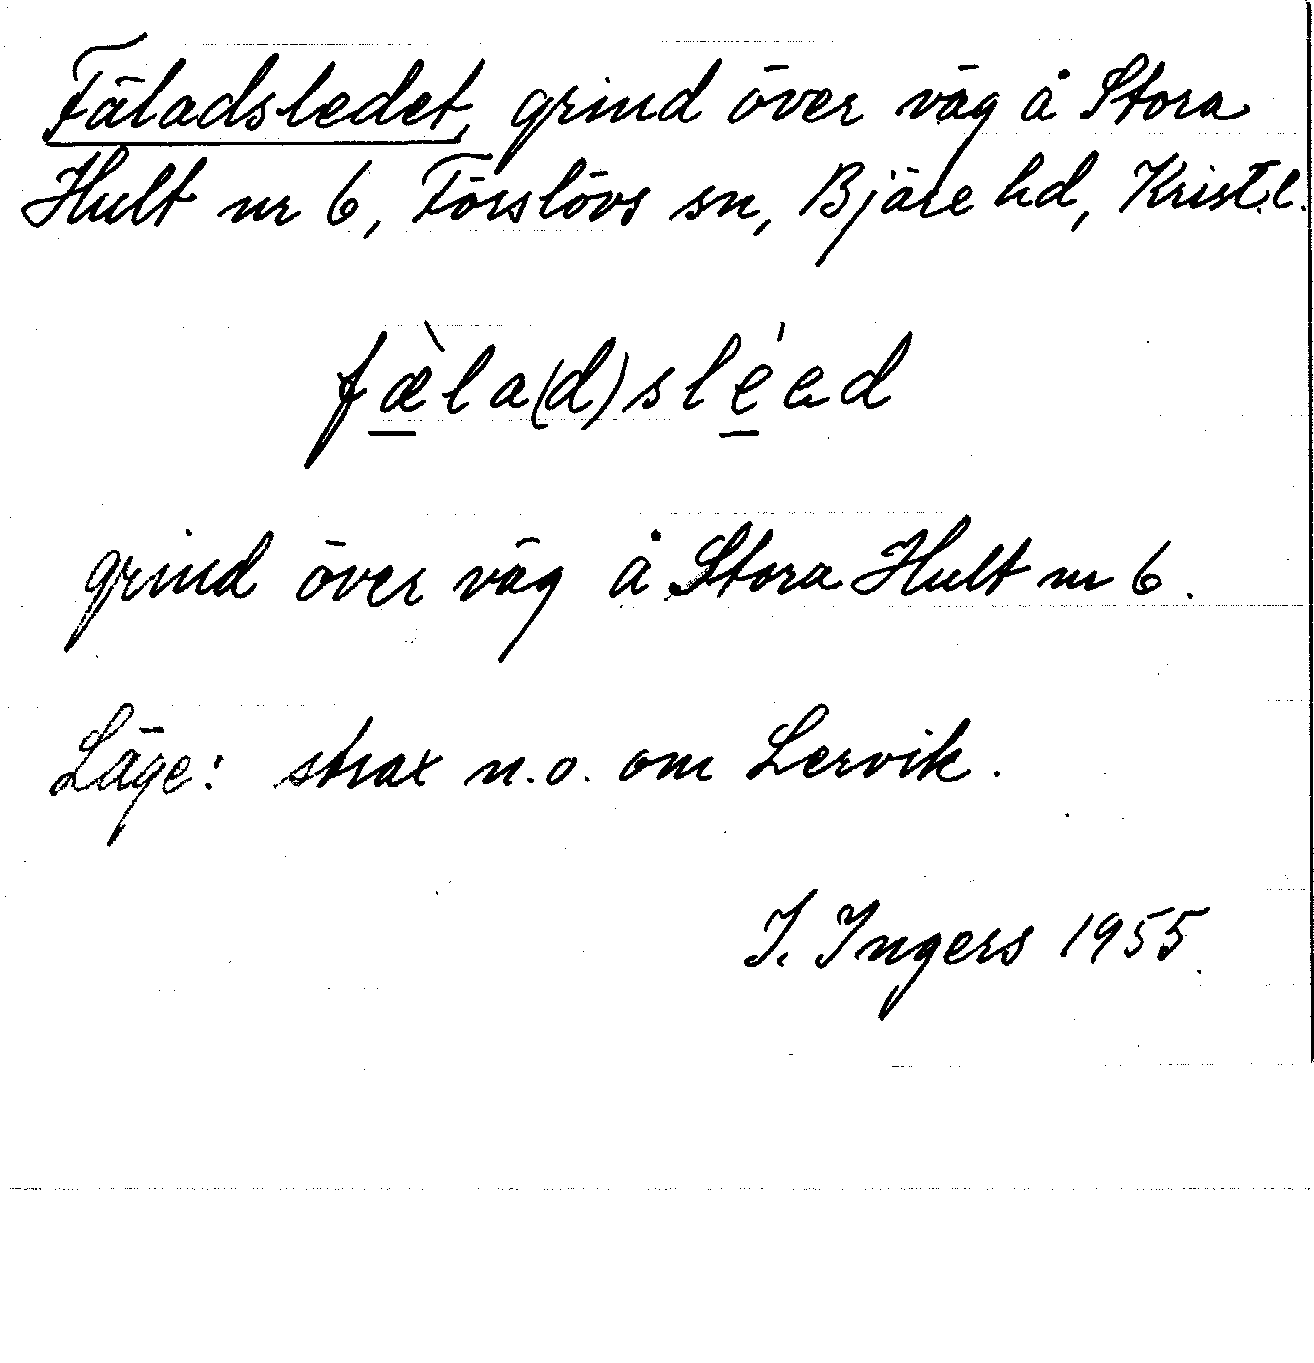 Fäladsledet, grind över väg å Stora
Hult nr 6, Förslövs sn, Bjäre hd, Krist.l.
fæ̠̀la(d)slé̠ed
grind över väg å Stora Hult nr 6.
Läge: strax n.o. om Lervik.
I. Ingers 1955.